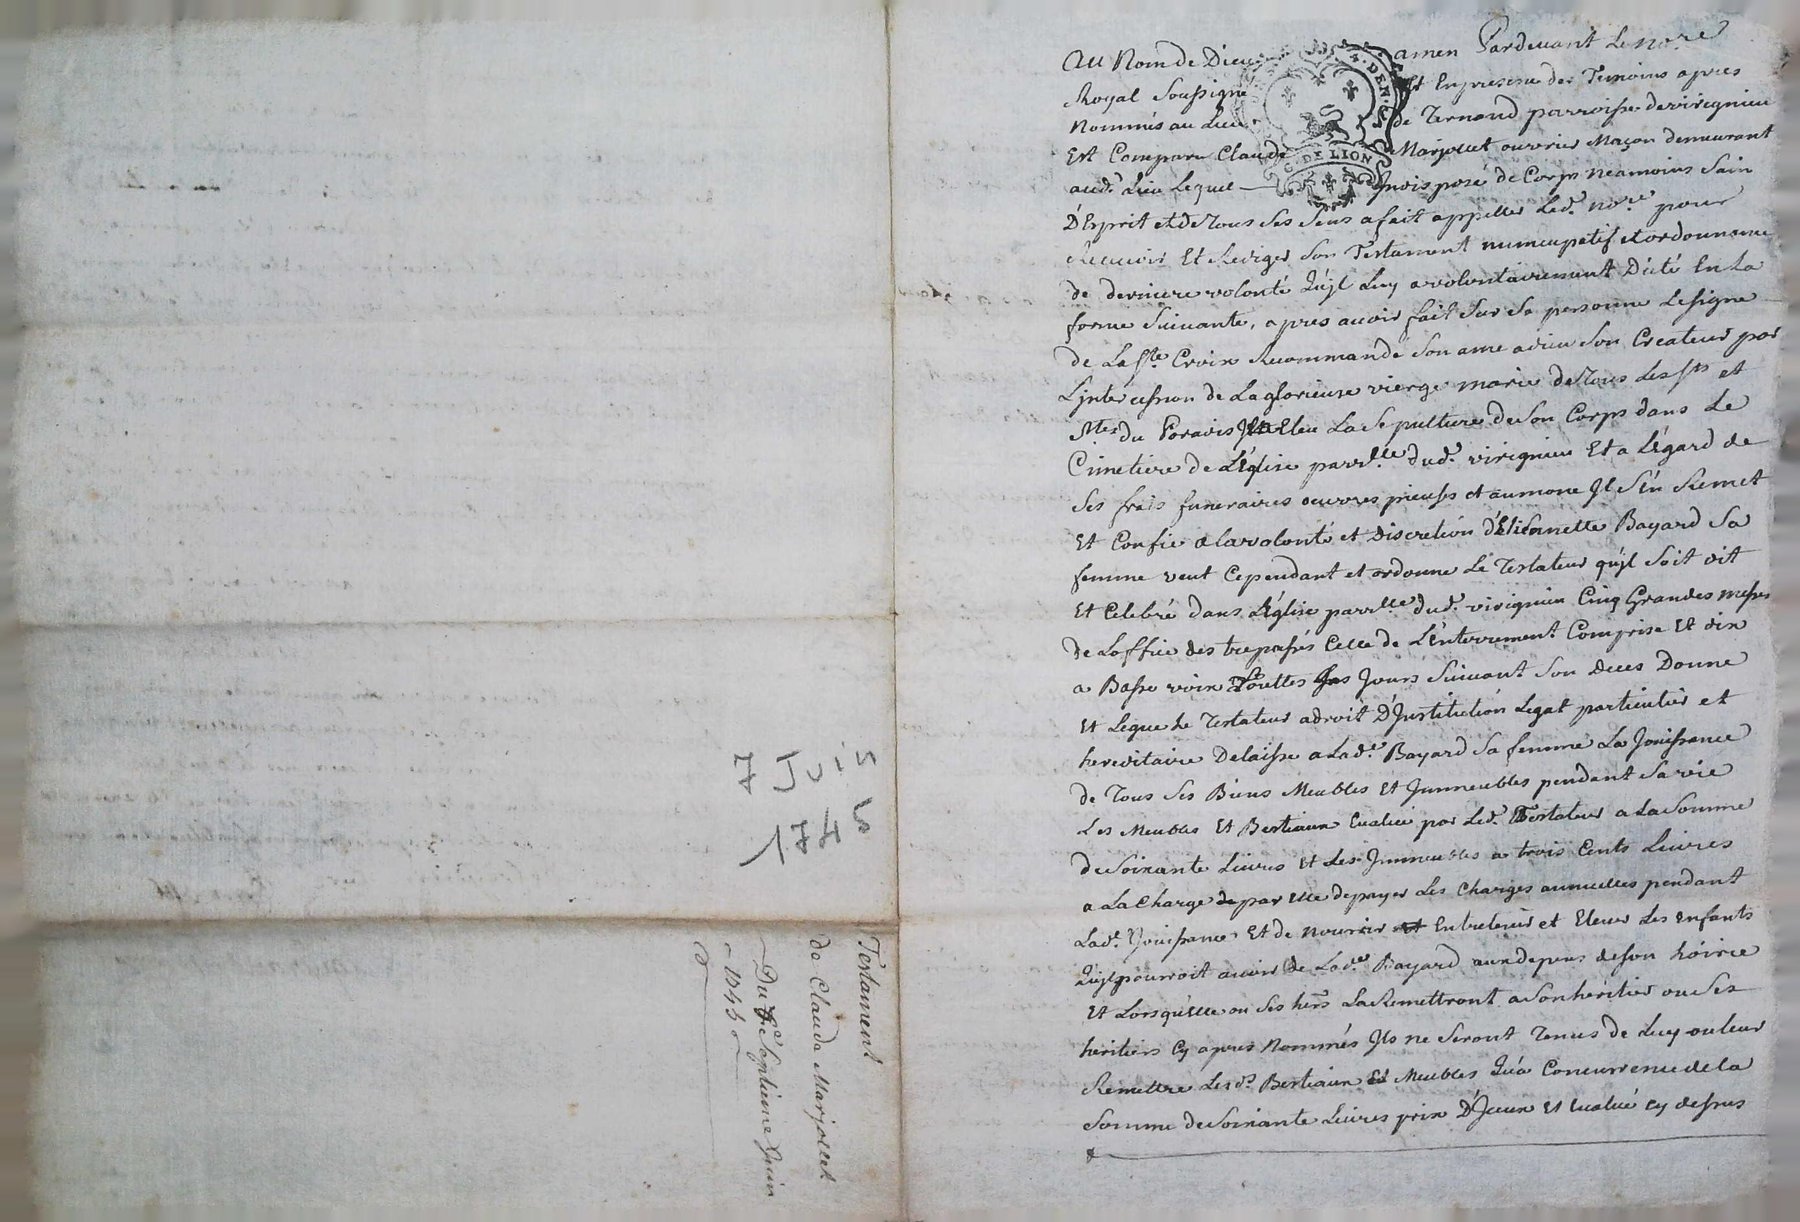 7 Juin
1745
Testament
de Claude Marjollet
Du 7e Septieme Juin
1745
Au Nom de Dieu amen Pardevant Le nore
Royal Soussigné Et En presence des Temoins apres
Nommés au Lieu de Ternand parroisse de virignieu
Est Comparu Claude Marjollet ouvrier Maçon demeurant
aud. Lieu Lequel Jndisposé de Corps neamoins Sain
D'Esprit et de Tous Ses Sens a fait appeller Led. nore pour
Recevoir Et Rediger Son Testament nuncupatif et ordonnance
de derniere volonté Qu'jl Luy a volontairement Dicté En La
forme Suivante, apres avoir fait Sur Sa personne Le signe
de La Ste Croix Recommandé Son ame a dieu Son Createur par
L'jntercession de La glorieuse vierge marie de Tous Les Sts et
Stes du Paradis Eleu La Sepulture de Son Corps dans Le
Cimetiere de L'Eglise parrlle dud. virignieu Et a L'Egard de
Ses frais funeraires oeuvres pieuses et aumone Jl S'en Remet
Et Confie a la volonté et Discretion d' Bayard Sa
femme veut Cependant et ordonne Le Testateur qu'jl Soit dit
Et Celebré dans L'Eglise parrlle dud. virignieu Cinq Grandes messes
de L'office des trepassés Celle de L'Enterrement Comprise Et dix
a Basse voix Jours Suivant Son deces Donne
Et Legue Le Testateur a droit D'Jnstitution Legat particulier et
hereditaire Delaisse a Lade Bayard Sa femme La Jouissance
de Tous Ses Biens Meubles Et Jmmeubles pendant Sa vie
Les Meubles Et Bestiaux Evalué par Led. Testateur a La Somme
de Soixante Livres Et Les Jmmeubles a trois Cents Livres
a La Charge par elle de payer Les Charges annuelles pendant
Lade Jouissance Et de nourrir Entretenir et Elever Les enfants
Qu'jl pourroit avoir de Lade Bayard aux depens de son hoirie
Et Lorsqu'elle ou Ses hers La Remettront a Son heritier ou Ses
heritiers Cy apres Nommés Jls ne Seront Tenus de Luy ou leur
Remettre Lesds Bestiaux Et Meubles Qu'a Concurrence de la
Somme de Soixante Livres prix D'Jceux Et Evalué cy dessus
DE LION